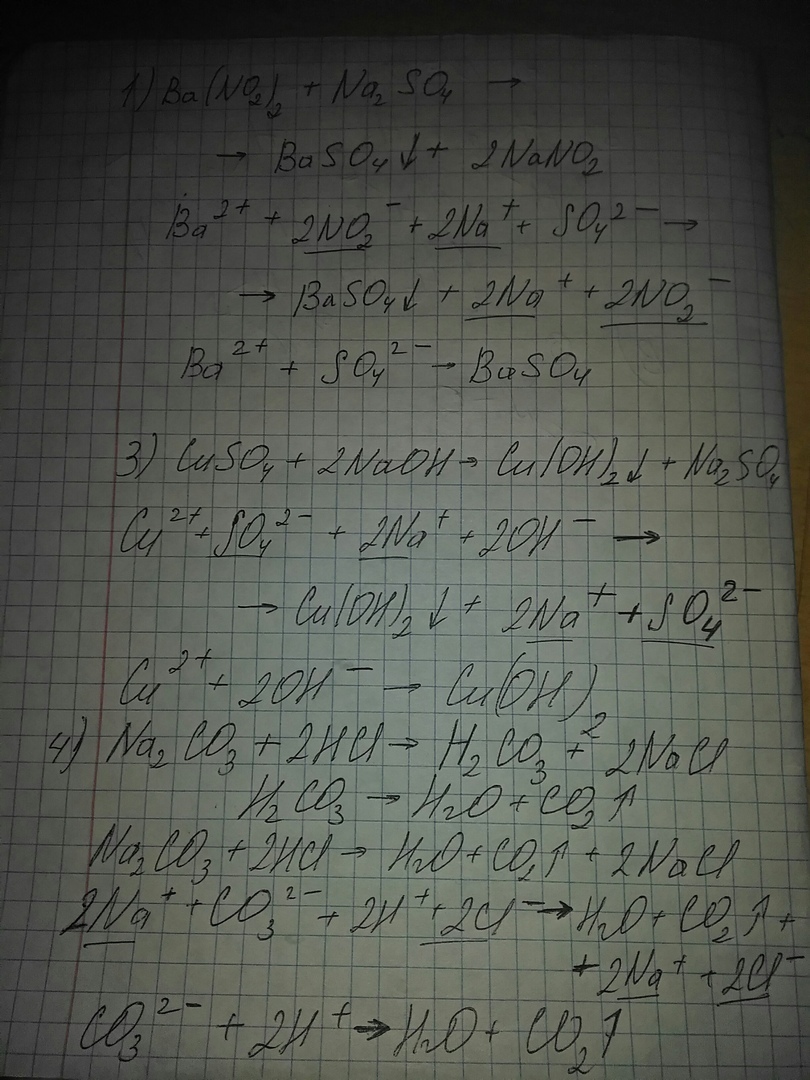 1) Ba(NO₂)₂ + Na₂SO₄ →
→ BaSO₄↓ + 2NaNO₂
Ba²⁺ + 2NO₂⁻ + 2Na⁺ + SO₄²⁻ →
→ BaSO₄↓ + 2Na⁺ + 2NO₂⁻
Ba²⁺ + SO₄²⁻ → BaSO₄
3) CuSO₄ + 2NaOH → Cu(OH)₂↓ + Na₂SO₄
Cu²⁺ + SO₄²⁻ + 2Na⁺ + 2OH⁻ →
→ Cu(OH)₂↓ + 2Na⁺ + SO₄²⁻
Cu²⁺ + 2OH⁻ → Cu(OH)₂
4) Na₂CO₃ + 2HCl → H₂CO₃ + 2NaCl
H₂CO₃ → H₂O + CO₂↑
Na₂CO₃ + 2HCl → H₂O + CO₂↑ + 2NaCl
2Na⁺ + CO₃²⁻ + 2H⁺ + 2Cl⁻ → H₂O + CO₂↑ +
+ 2Na⁺ + 2Cl⁻
CO₃²⁻ + 2H⁺ → H₂O + CO₂↑